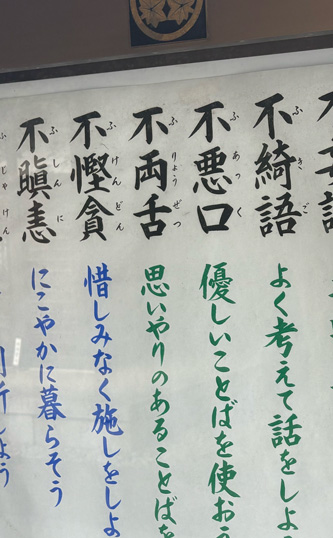 不綺語
ふきご
よく考えて話をしよ
不悪口
ふあっく
優しいことばを使おう
不両舌
ふりょうぜつ
思いやりのあることばを
不慳貪
ふけんどん
惜しみなく施しをしよ
不瞋恚
ふしんに
にこやかに暮らそう
じゃけん
しよう